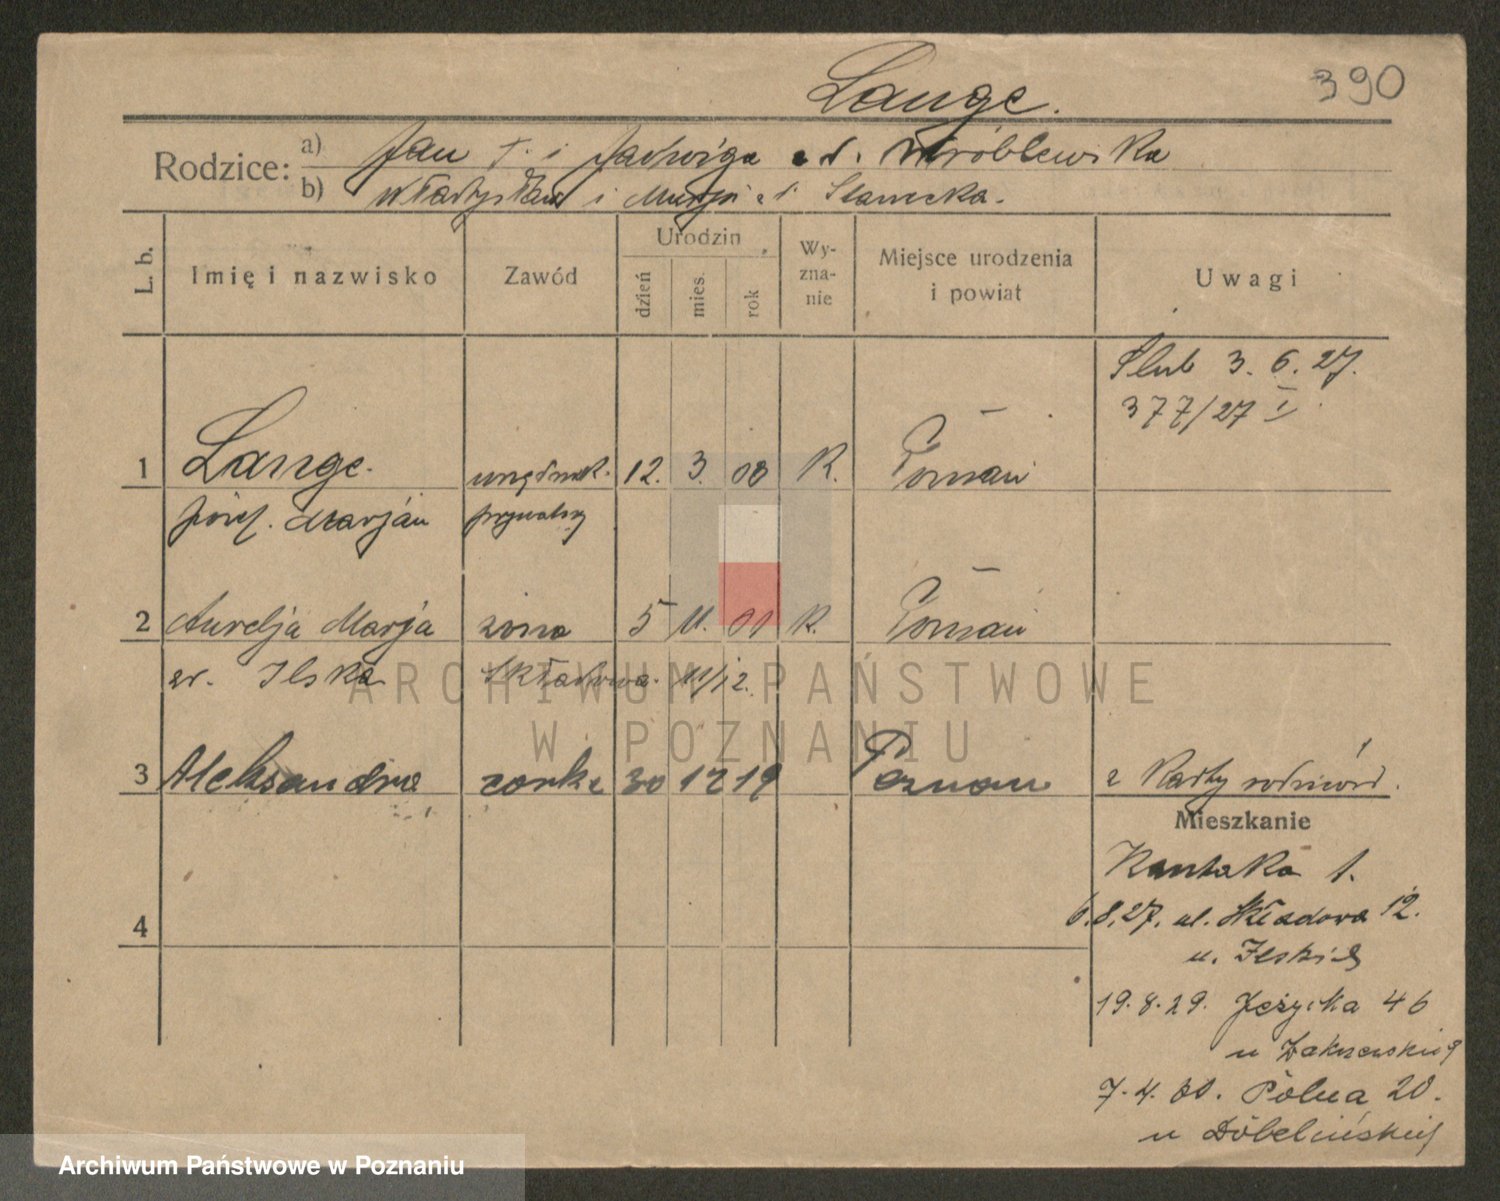 390
Lange.
Rodzice:
a) Jan †. i Jadwiga z d. Wróblewska
b) Władysław i Marja z d. Stanecka.
L. b.
Imię i nazwisko
Zawód
Urodzin
dzień
mies.
rok
Wy-
zna-
nie
Miejsce urodzenia
i powiat
Uwagi
Ślub 3. 6. 27.
377/27 I
1 Lange. urzędnik. 12. 3. 00 R. Poznań
Józef. Marjan prywatny
2 Aurelja Marja żona 5 11. 01 R. Poznań
z Ilska Składowa. 11/12.
3 Aleksandra córka 30 12 19 Poznań z Karty
Mieszkanie
Kantaka 1.
4
6.8.27. ul. Składowa 12.
u. Ilskich
19.8.29. Jeżycka 46
u
7.4.30. Polna 20.
u
ARCHIWUM PAŃSTWOWE
W POZNANIU
Archiwum Państwowe w Poznaniu